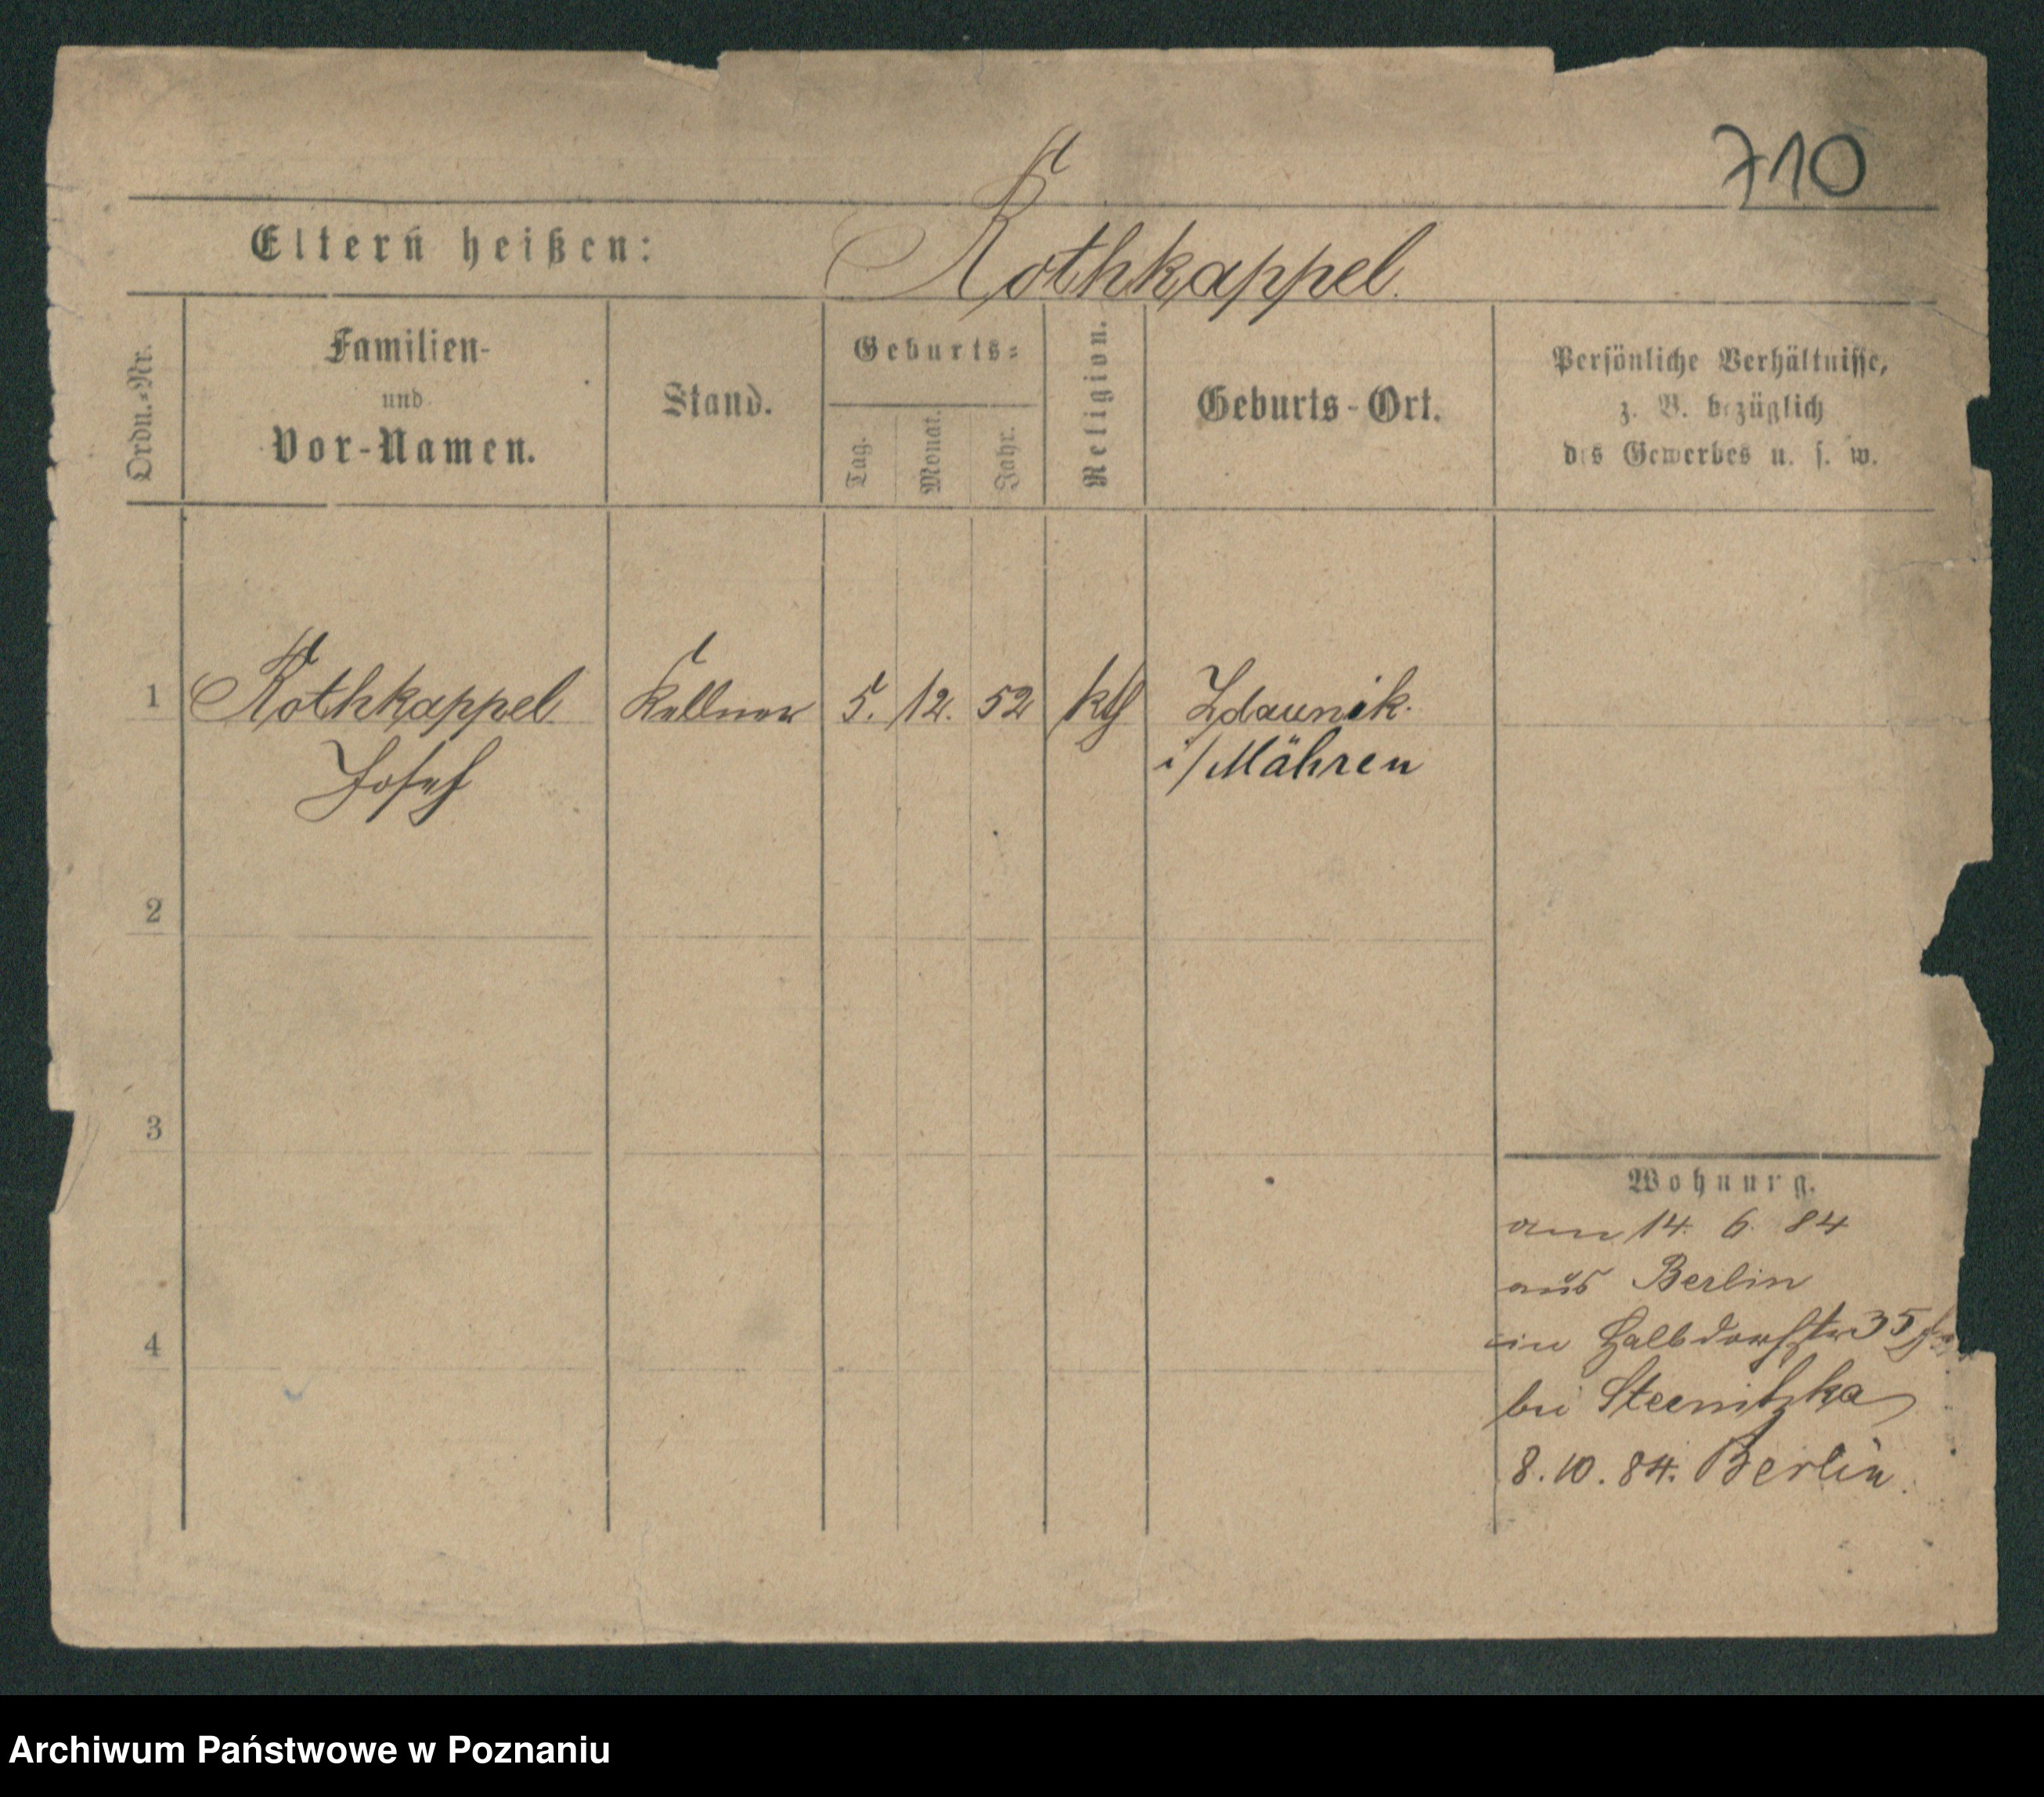 710
Eltern heißen: Rothkappel.
Ordn.-Nr.
Familien-
und
Vor-Namen.
Stand.
Geburts-
Tag.
Monat.
Jahr.
Religion.
Geburts-Ort.
Persönliche Verhältnisse,
z. B. bezüglich
des Gewerbes u. s. w.
1 Rothkappel Kellner 5. 12. 52 kth Zdaunik.
Josef i/Mähren
2
3
4
Wohnung.
am 14. 6. 84
aus Berlin
in Halbdorfstr 35
bei
8. 10. 84. Berlin.
Archiwum Państwowe w Poznaniu